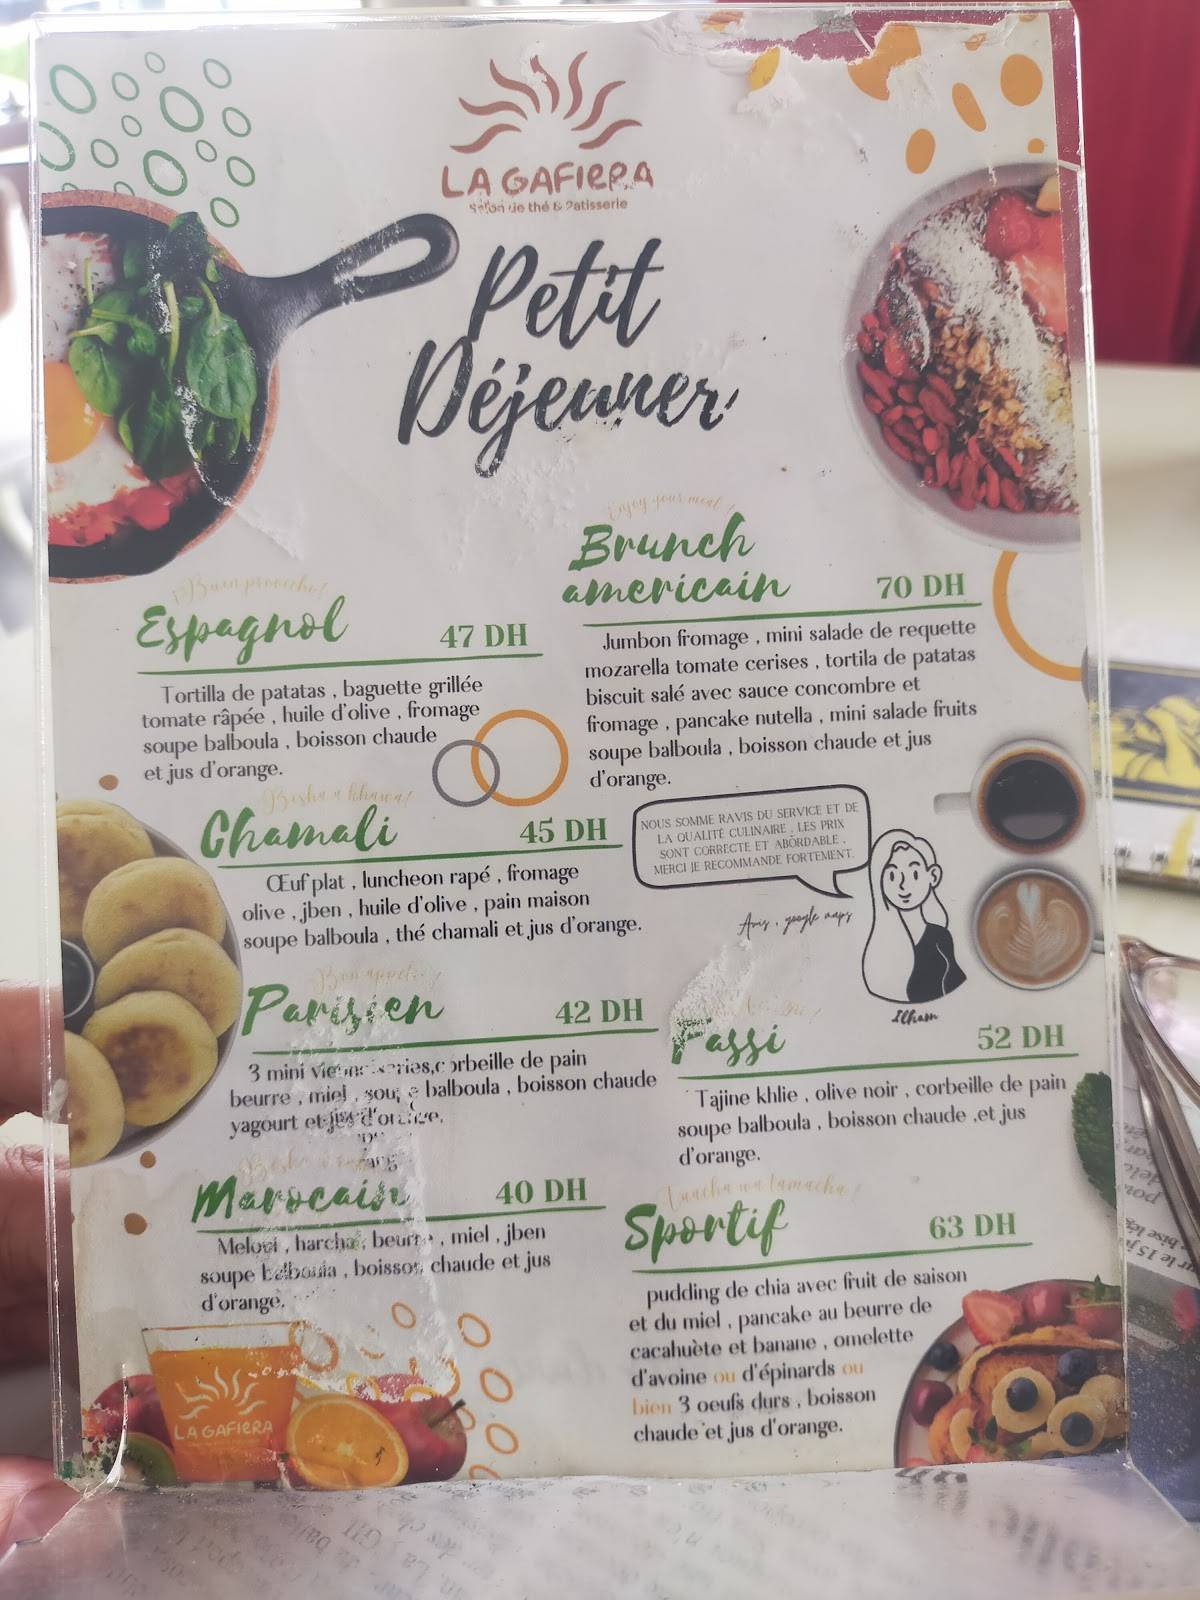 LA GAFIERA
Salon de thé & Patisserie
Petit
Déjeuner
¡Buen provecho!
Espagnol 47 DH
Tortilla de patatas , baguette grillée
tomate râpée , huile d'olive , fromage
soupe balboula , boisson chaude
et jus d'orange.
Enjoy your meal !
Brunch
americain 70 DH
Jumbon fromage , mini salade de requette
mozarella tomate cerises , tortila de patatas
biscuit salé avec sauce concombre et
fromage , pancake nutella , mini salade fruits
soupe balboula , boisson chaude et jus
d'orange.
Chamali 45 DH
Œuf plat , luncheon rapé , fromage
olive , jben , huile d'olive , pain maison
soupe balboula , thé chamali et jus d'orange.
NOUS SOMME RAVIS DU SERVICE ET DE
LA QUALITÉ CULINAIRE , LES PRIX
SONT CORRECTE ET ABORDABLE .
MERCI JE RECOMMANDE FORTEMENT.
Avis , google maps
Ilham
Parisien 42 DH
3 mini viennoiseries,corbeille de pain
beurre , miel , soupe balboula , boisson chaude
yagourt et jus d'orange.
Fassi 52 DH
Tajine khlie , olive noir , corbeille de pain
soupe balboula , boisson chaude ,et jus
d'orange.
Marocain 40 DH
Meloui , harcha , beurre , miel , jben
soupe balboula , boisson chaude et jus
d'orange.
Sportif 63 DH
pudding de chia avec fruit de saison
et du miel , pancake au beurre de
cacahuète et banane , omelette
d'avoine ou d'épinards ou
bien 3 oeufs durs , boisson
chaude et jus d'orange.
LA GAFIERA